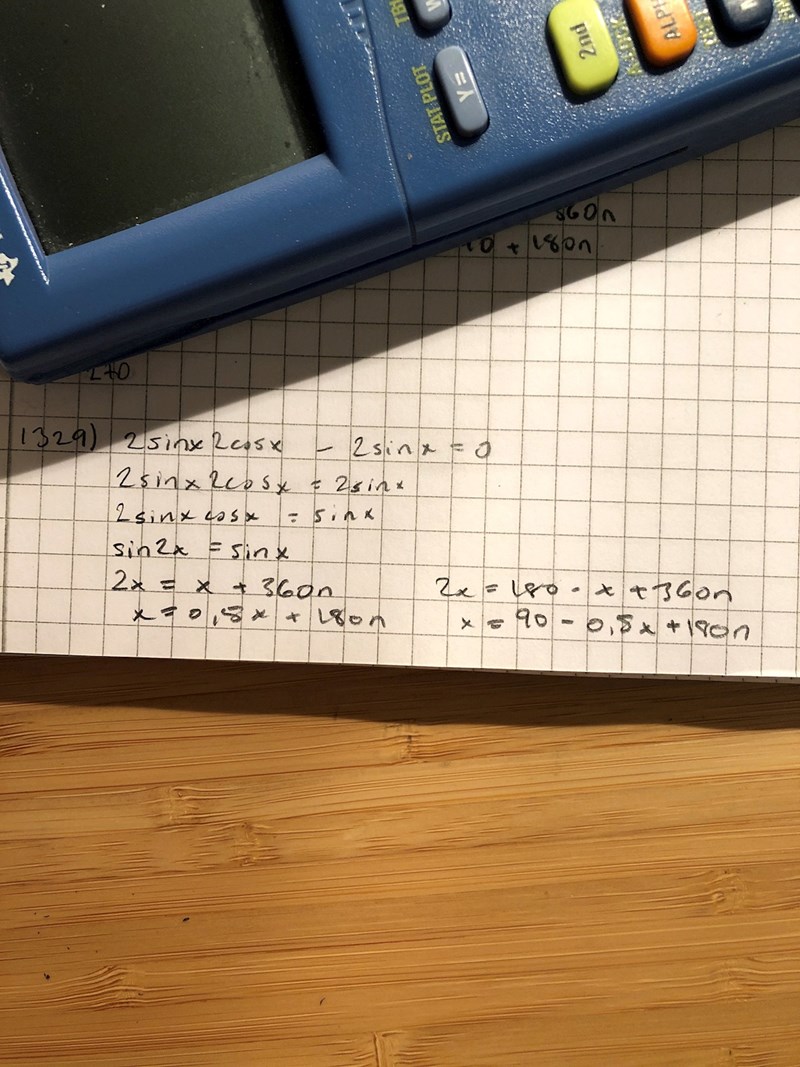 STAT PLOT
Y=
2nd
360n
+ 180n
1329) 2sinx2cosx - 2sinx = 0
2sinx2cosx = 2sinx
2sinxcosx = sinx
sin2x = sinx
2x = x + 360n 2x = 180 - x + 360n
x = 0,5x + 180n x = 90 - 0,5x + 180n